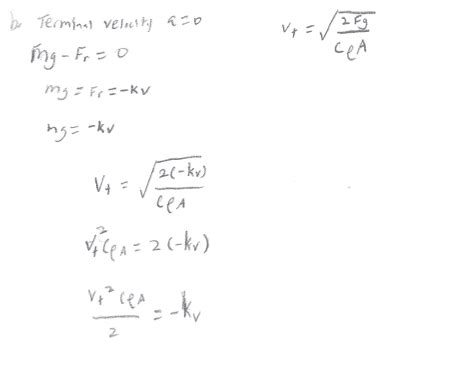 b. Terminal velocity a=0
V_t = √(2Fg / CρA)
mg - F_r = 0
mg = F_r = -kv
mg = -kv
V_t = √(2(-kv) / CρA)
V_t² CρA = 2(-kv)
V_t² CρA / 2 = -kv